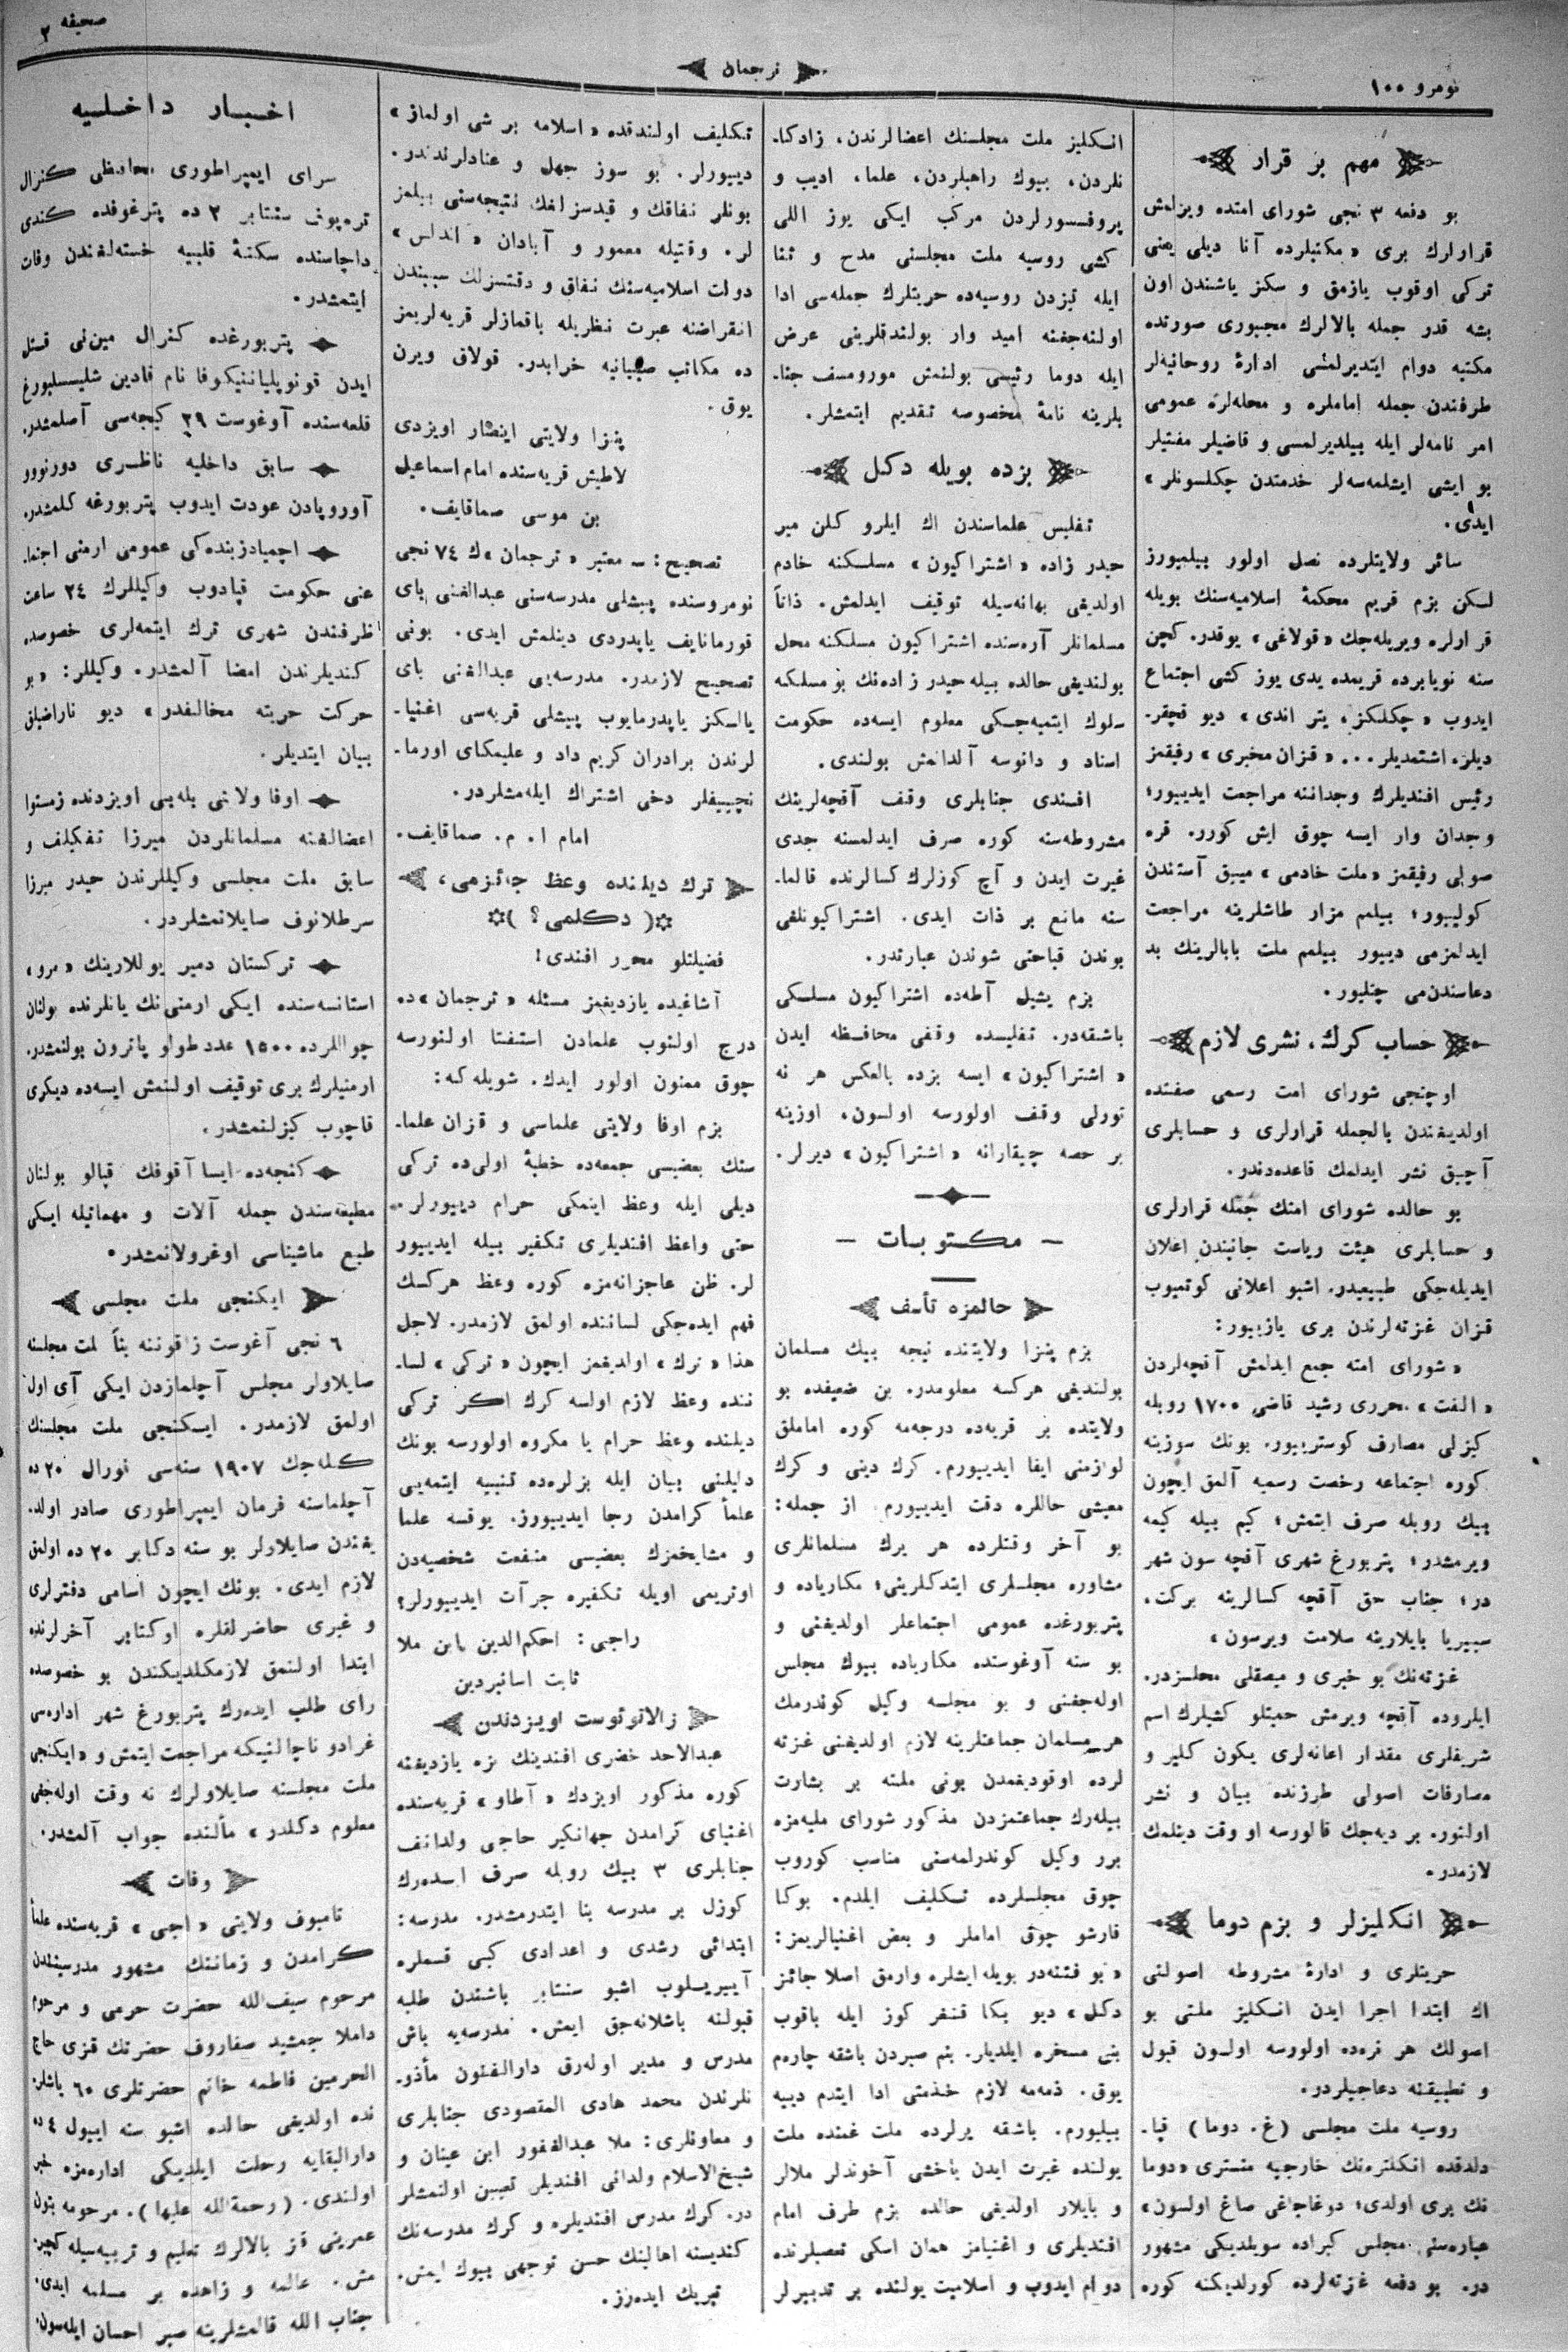 نومرو ١٠٠
ترجمان
صحيفه ٢
مهم بر قرار
بو دفعه ٣ نجى شوراى امتده ويرلمش
قرارلرك برى «مكتبلرده آنا ديلى يعنى
تركى اوقوب يازمق و سكز ياشندن اون
بشه قدر جمله بالالرك مجبورى صورتده
مكتبه دوام ايتديرلمسى ادارۀ روحانيه‌لر
طرفندن جمله اماملره و محله‌لره عمومى
امر نامه‌لر ايله بيلديرلمسى و قاضيلر مفتيلر
بو ايشى ايشلمه‌سه‌لر خدمتدن چكلسونلر»
ايدى.
سائر ولايتلرده نصل اولور بيلميورز
لسكن بزم قريم محكمۀ اسلاميه‌سنك بويله
قرارلره ويريله‌جك «قولاغى» يوقدر. كچن
سنه نويابرده قريمده يدى يوز كشى اجتماع
ايدوب «چكلكز، يتر اندى» ديو قچقر-
ديلر، اشتمديلر... «قزان مخبرى» رفيقمز
رئيس افنديلرك وجداننه مراجعت ايدييور؛
وجدان وار ايسه چوق ايش كورر. قره
صولى رفيقمز «ملت خادمى» ميبق آستندن
كولييور؛ بيلمم مزار طاشلرينه مراجعت
ايدلمزمى دييور بيلمم ملت بابالرينك بد
دعاسندن‌مى چتليور.
حساب كرك، نشرى لازم
اوچنجى شوراى امت رسمى صفتده
اولديغندن بالجمله قرارلرى و حسابلرى
آچيق نشر ايدلمك قاعده‌دندر.
بو حالده شوراى امتك جمله قرارلرى
و حسابلرى هيئت رياست جانبندن اعلان
ايديله‌جكى طبيعيدر. اشبو اعلانى كوتميوب
قزان غزته‌لرندن برى يازييور:
«شوراى امته جمع ايدلمش آقچه‌لردن
«الفت» محررى رشيد قاضى ١٧٠٠ روبله
كيزلى مصارف كوسترييور. بونك سوزينه
كوره اجتماعه رخصت رسميه آلمق ايچون
بيك روبله صرف ايتمش؛ كيم بيله كيمه
ويرمشدر؛ پتربورغ شهرى آقچه سون شهر
در؛ جناب حق آقچه كسالرينه بركت،
سيبيريا بايلارينه سلامت ويرسون»
غزته‌نك بو خبرى و ميصقلى محلسزدر.
ايلروده آقچه ويرمش حميتلو كشيلرك اسم
شريفلرى مقدار اعانه‌لرى يكون كلير و
مصارفات اصولى طرزنده بيان و نشر
اولنور. بر ديه‌جك قالورسه او وقت دينلمك
لازمدر.
انكليزلر و بزم دوما
حريتلرى و ادارۀ مشروطه اصولنى
اك ابتدا اجرا ايدن انسكليز ملتى بو
اصولك هر نره‌ده اولورسه اولسون قبول
و تطبيقنه دعاجيلردر.
روسيه ملت مجلسى (غ. دوما) قپا-
دلدقده انكلتره‌نك خارجيه منسترى «دوما
نك برى اولدى؛ دوغاجاغى صاغ اولسون»
عباره‌سنى مجلس كبراده سويلديكى مشهور
در. بو دفعه غزته‌لرده كورلديكنه كوره
انسكليز ملت مجلسنك اعضالرندن، زادكا-
نلردن، بيوك راهبلردن، علما، اديب و
پروفسورلردن مركب ايكى يوز اللى
كشى روسيه ملت مجلسنى مدح و ثنا
ايله تيزدن روسيه‌ده حريتلرك جمله‌سى ادا
اولنه‌جغنه اميد وار بولندقلرينى عرض
ايله دوما رئيسى بولنمش مورومسف جنا-
بلرينه نامۀ مخصوصه تقديم ايتمشلر.
بزده بويله دكل
تفليس علماسندن اك ايلرو كلن مير
حيدر زاده «اشتراكيون» مسلسكنه خادم
اولديغى بهانه‌سيله توقيف ايدلمش. ذاتاً
مسلمانلر آره‌سنده اشتراكيون مسلكنه محل
بولنديغى حالده بيله حيدر زاده‌نك بو مسلكه
سلوك ايتميه‌جكى معلوم ايسه‌ده حكومت
اسناد و دانوسه آلدانمش بولندى.
افندى جنابلرى وقف آقچه‌لرينك
مشروطه‌سنه كوره صرف ايدلمسنه جدى
غيرت ايدن و آچ كوزلرك كسالرنده قالما-
سنه مانع بر ذات ايدى. اشتراكيونلغى
بوندن قباحتى شوندن عبارتدر.
بزم يشيل آطه‌ده اشتراكيون مسلكى
باشقه‌در. تفليسده وقفى محافظه ايدن
«اشتراكيون» ايسه بزده بالعكس هر نه
تورلى وقف اولورسه اولسون، اوزينه
بر حصه چيقارانه «اشتراكيون» ديرلر.
— مكتوبات —
حالمزه تأسف
بزم پنزا ولايتنده نيجه بيك مسلمان
بولنديغى هركسه معلومدر. بن ضعيفده بو
ولايتده بر قريه‌ده درجه‌مه كوره اماملق
لوازمنى ايفا ايدييورم. كرك دينى و كرك
معيشى حاللره دقت ايدييورم. از جمله:
بو آخر وقتلرده هر يرك مسلمانلرى
مشاوره مجلسلرى ايتدكلرينى؛ مكارياده و
پتربورغده عمومى اجتماعلر اولديغنى و
بو سنه آوغوستده مكارياده بيوك مجلس
اوله‌جغنى و بو مجلسه وكيل كوندرمك
هر مسلمان جماعتلرينه لازم اولديغنى غزته
لرده اوقوديغمدن بونى ملته بر بشارت
بيله‌رك جماعتمزدن مذكور شوراى مليه‌مزه
برر وكيل كوندرلمه‌سنى مناسب كوروب
چوق مجلسلرده تسكليف ايلدم. بوكا
قارشو چوق اماملر و بعض اغنيالريمز:
«بو فتنه‌در بويله ايشلره وارمق اصلا جائز
دكل» ديو بكا قنفر كوز ايله باقوب
بنى مسخره ايلديلر. بنم صبردن باشقه چاره‌م
يوق. ذمه‌مه لازم خدمتى ادا ايتدم دييه
بيليورم. باشقه يرلرده ملت غمنده ملت
يولنده غيرت ايدن ياخشى آخوندلر ملالر
و بايلار اولديغى حالده بزم طرف امام
افنديلرى و اغنيامز همان اسكى تعصبلرنده
دوام ايدوب و اسلاميت يولنده بر تدبيرلر
تكليف اولندقده «اسلامه بر شى اولماز»
دييورلر. بو سوز جهل و عنادلرندندر.
بونلر نفاقك و قيدسزلغك نتيجه‌سنى بيلمز
لر. وقتيله معمور و آبادان «اندلس»
دولت اسلاميه‌سنك نفاق و دقتسزلك سببندن
انقراضنه عبرت نظريله باقمازلر قريه‌لريمز
ده مكاتب صبيانيه خرابدر. قولاق ويرن
يوق.
پنزا ولايتى اينصار اويزدى
لاطبش قريه‌سنده امام اسماعيل
بن موسى صماقايف.
تصحيح: ــ معتبر «ترجمان»ك ٧٤ نجى
نومروسنده پيشلى مدرسه‌سنى عبدالغنى باى
قورمانايف ياپدردى دينلمش ايدى. بونى
تصحيح لازمدر. مدرسه‌يى عبدالغنى باى
يالكز ياپدرمايوب پيشلى قريه‌سى اغنيا-
لرندن برادران كريم داد و عليمكاى اورما-
نچييفلر دخى اشتراك ايله‌مشلردر.
امام ا. م. صماقايف.
ترك ديلنده وعظ جائزمى،
(دكلمى؟)
فضيلتلو محرر افندى!
آشاغيده يازديغمز مسئله «ترجمان»ده
درج اولنوب علمادن استفتا اولنورسه
چوق ممنون اولور ايدك. شويله‌كه:
بزم اوفا ولايتى علماسى و قزان علما-
سنك بعضيسى جمعه‌ده خطبۀ اولى‌ده تركى
ديلى ايله وعظ ايتمكى حرام دييورلر.
حتى واعظ افنديلرى تكفير بيله ايدييور
لر. ظن عاجزانه‌مزه كوره وعظ هركسك
فهم ايده‌جكى لساننده اولمق لازمدر. لاجل
هذا «ترك» اولديغمز ايچون «تركى» لسا-
ننده وعظ لازم اولسه كرك اكر تركى
ديلنده وعظ حرام يا مكروه اولورسه بونك
دليلنى بيان ايله بزلره‌ده تنبيه ايتمه‌يى
علمأ كرامدن رجا ايدييورز. يوقسه علما
و مشايخمزك بعضيسى منفعت شخصيه‌دن
اوتريمى اويله تكفيره جرأت ايدييورلر؟
راجى: احكم‌الدين ابن ملا
ثابت اسانبردين
زلاتوئوست اويزدندن
عبدالاحد خضرى افندينك بزه يازديغنه
كوره مذكور اويزدك «آطاو» قريه‌سنده
اغنياى كرامدن جهانكير حاجى ولدانف
جنابلرى ٣ بيك روبله صرف ايده‌رك
كوزل بر مدرسه بنا ايتدرمشدر. مدرسه:
ابتدائى رشدى و اعدادى كبى قسملره
آييريلوب اشبو سنتابر باشندن طلبه
قبولنه باشلانه‌جق ايمش. مدرسه‌يه باش
مدرس و مدير اوله‌رق دارالفنون مأذو-
نلرندن محمد هادى المقصودى جنابلرى
و معاونلرى: ملا عبدالغفور ابن عينان و
شيخ‌الاسلام ولدانى افنديلر تعيين اولنمشلر
در. كرك مدرس افنديلره و كرك مدرسه‌نك
كنديسنه اهالينك حسن توجهى بيوك ايمش.
تبريك ايده‌رز.
اخبار داخليه
سراى ايمپراطورى محافظى كنرال
تره‌پوف سنتابر ٢ ده پترغوفده كندى
داچاسنده سكتۀ قلبيه خسته‌لغندن وفات
ايتمشدر.
پتربورغده كنرال مين‌نى قتل
ايدن قونوپليانيكوفا نام قادين شليسلبورغ
قلعه‌سنده آوغوست ٢٩ كيجه‌سى آصلمشدر.
سابق داخليه ناظرى دورنوو
آوروپادن عودت ايدوب پتربورغه كلمشدر.
اچميادزينده‌كى عمومى ارمنى اجتما-
عنى حكومت قپادوب وكيللرك ٢٤ ساعت
ظرفندن شهرى ترك ايتمه‌لرى خصوصده
كنديلرندن امضا آلمشدر. وكيللر: «بو
حركت حريته مخالفدر» ديو ناراضيلق
بيان ايتديلر.
اوفا ولايتى بله‌بى اويزدنده زمستوا
اعضالغنه مسلمانلردن ميرزا تفكيلف و
سابق ملت مجلسى وكيللرندن حيدر ميرزا
سرطلانوف صايلانمشلردر.
تركستان دمير يوللارينك «مرو»
استانسه‌سنده ايكى ارمنى‌نك يانلرنده بولنان
جواللرده ١٥٠٠ عدد طولو پاترون بولنمشدر.
ارمنيلرك برى توقيف اولنمش ايسه‌ده ديكرى
قاچوب كيزلنمشدر.
كنجه‌ده ايسا آقوفك قپالو بولنان
مطبعه‌سندن جمله آلات و مهماتيله ايكى
طبع ماشيناسى اوغرولانمشدر.
ايكنجى ملت مجلسى
٦ نجى آغوست زاقوننه بنأ ملت مجلسنه
صايلاولر مجلس آچلمازدن ايكى آى اول
اولمق لازمدر. ايكنجى ملت مجلسنك
كله‌جك ١٩٠٧ سنه‌سى فورال ٢٠ ده
آچلماسنه فرمان ايمپراطورى صادر اولد-
يغندن صايلاولر بو سنه دكابر ٢٠ ده اولمق
لازم ايدى. بونك ايچون اسامى دفترلرى
و غيرى حاضرلقلره اوكتابر آخرلرنده
ابتدا اولنمق لازمكلديكندن بو خصوصده
راى طلب ايده‌رك پتربورغ شهر اداره‌سى
غرادو ناچالنيكه مراجعت ايتمش و «ايكنجى
ملت مجلسنه صايلاولرك نه وقت اوله‌جغى
معلوم دكلدر» مألنده جواب آلمشدر.
وفات
تامبوف ولايتى «اجى» قريه‌سنده علمأ
كرامدن و زماننك مشهور مدرسيندن
مرحوم سيف‌الله حضرت حرمى و مرحوم
داملا جمشيد صفاروف حضرتك قزى حاج
الحرمين فاطمه خانم حضرتلرى ٦٠ ياشلر-
نده اولديغى حالده اشبو سنه اييول ٤ ده
دارالبقايه رحلت ايلديكى اداره‌مزه خبر
اولندى. (رحمةالله عليها). مرحومه بتون
عمرينى قز بالالرك تعليم و تربيه‌سيله كچير-
مش. عالمه و زاهده بر مسلمه ايدى.
جناب الله قالمشلرينه صبر احسان ايله‌سون.